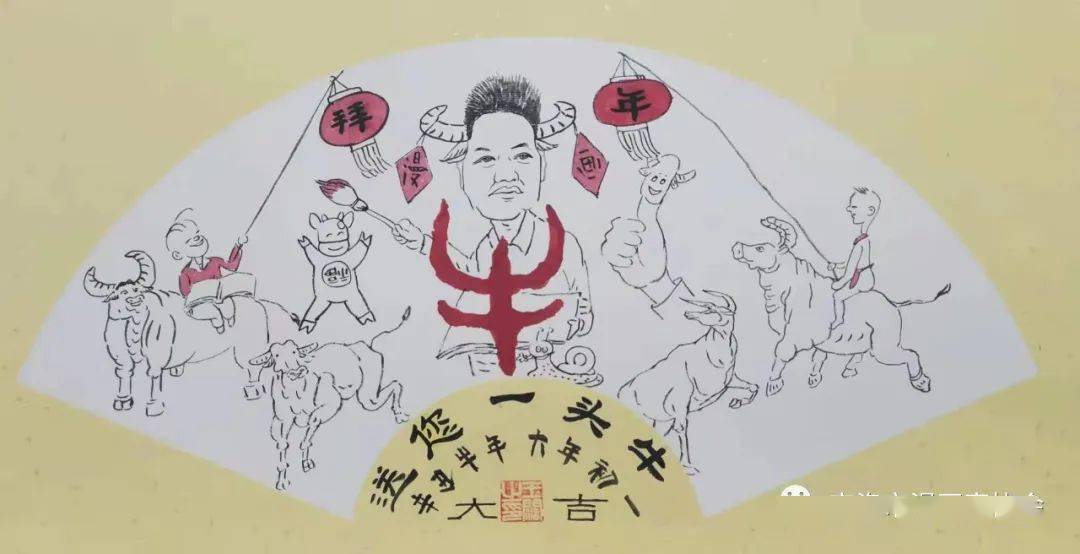 拜
年
漫
画
牛
福
送你一头牛
辛丑牛年大年初一
大吉